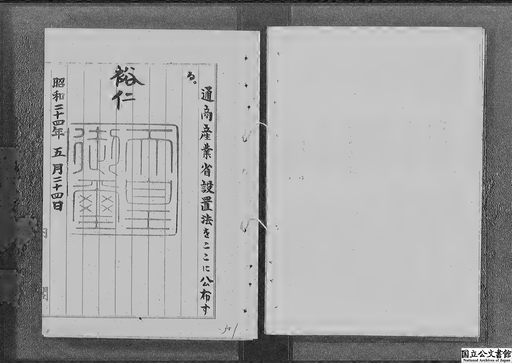 通商産業省設置法をここに公布す
る。
裕仁
天皇
御璽
昭和二十四年五月二十四日
内閣
国立公文書館
National Archives of Japan